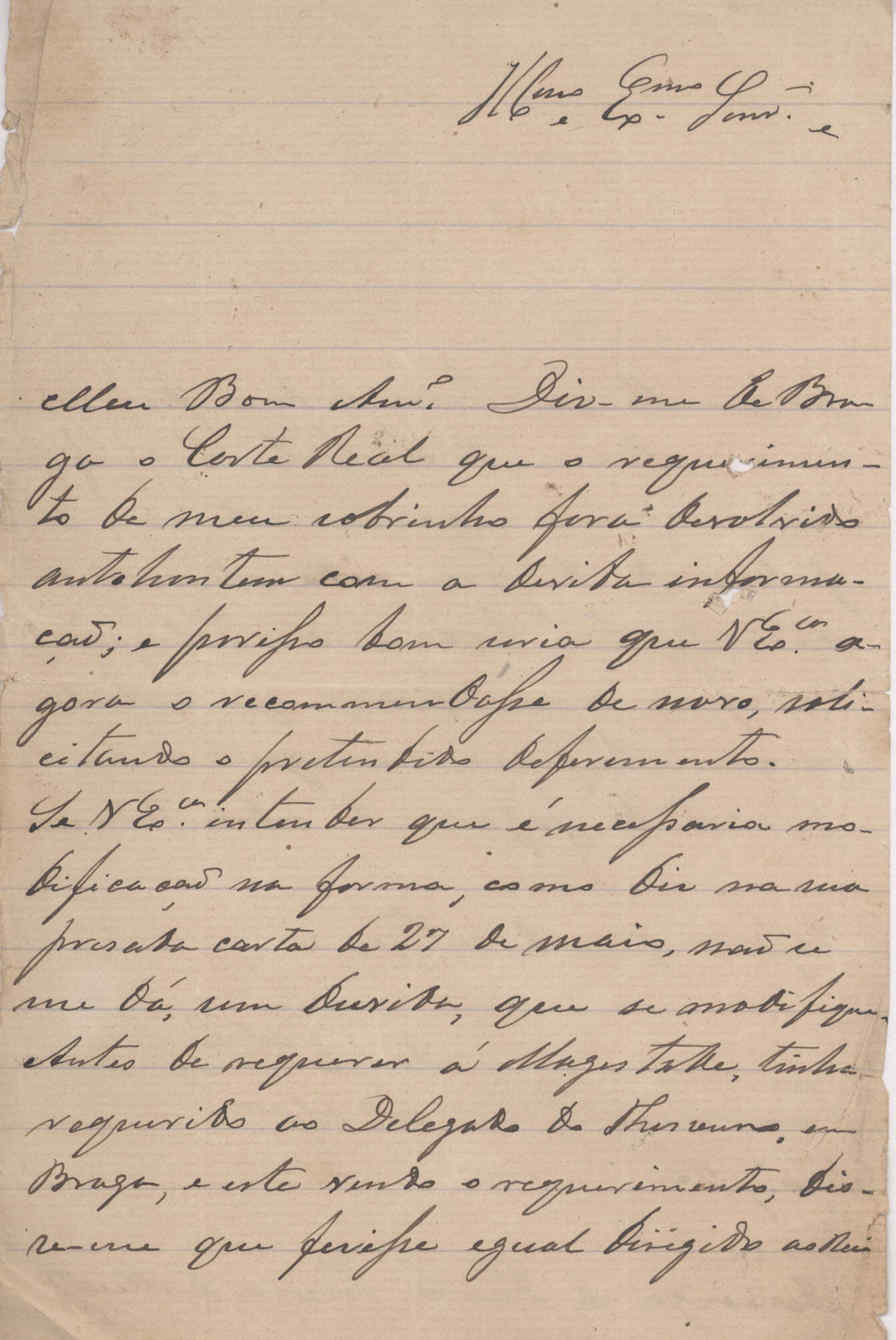 Illmo e Exmo Senr. e
Meu Bom Amo. Diz-me de Bra
ga o Corte Real que o requerimen-
to de meu sobrinho fora devolvido
antehontem com a devida informa-
çaõ; e porisso bom seria que VExcia. a-
gora o recommendasse de novo, soli-
citando o pretendido deferimento.
Se VExcia. intender que é necessaria mo-
dificaçaõ na forma, como diz na sua
presada carta de 27 de maio, naõ se
me dá, sem duvida, que se modifique.
Antes de requerer á Magestade, tinha
requerido ao Delegado do Thesouro, em
Braga, e este vendo o requerimento, dis-
se-me que fizesse egual dirigido ao Rei